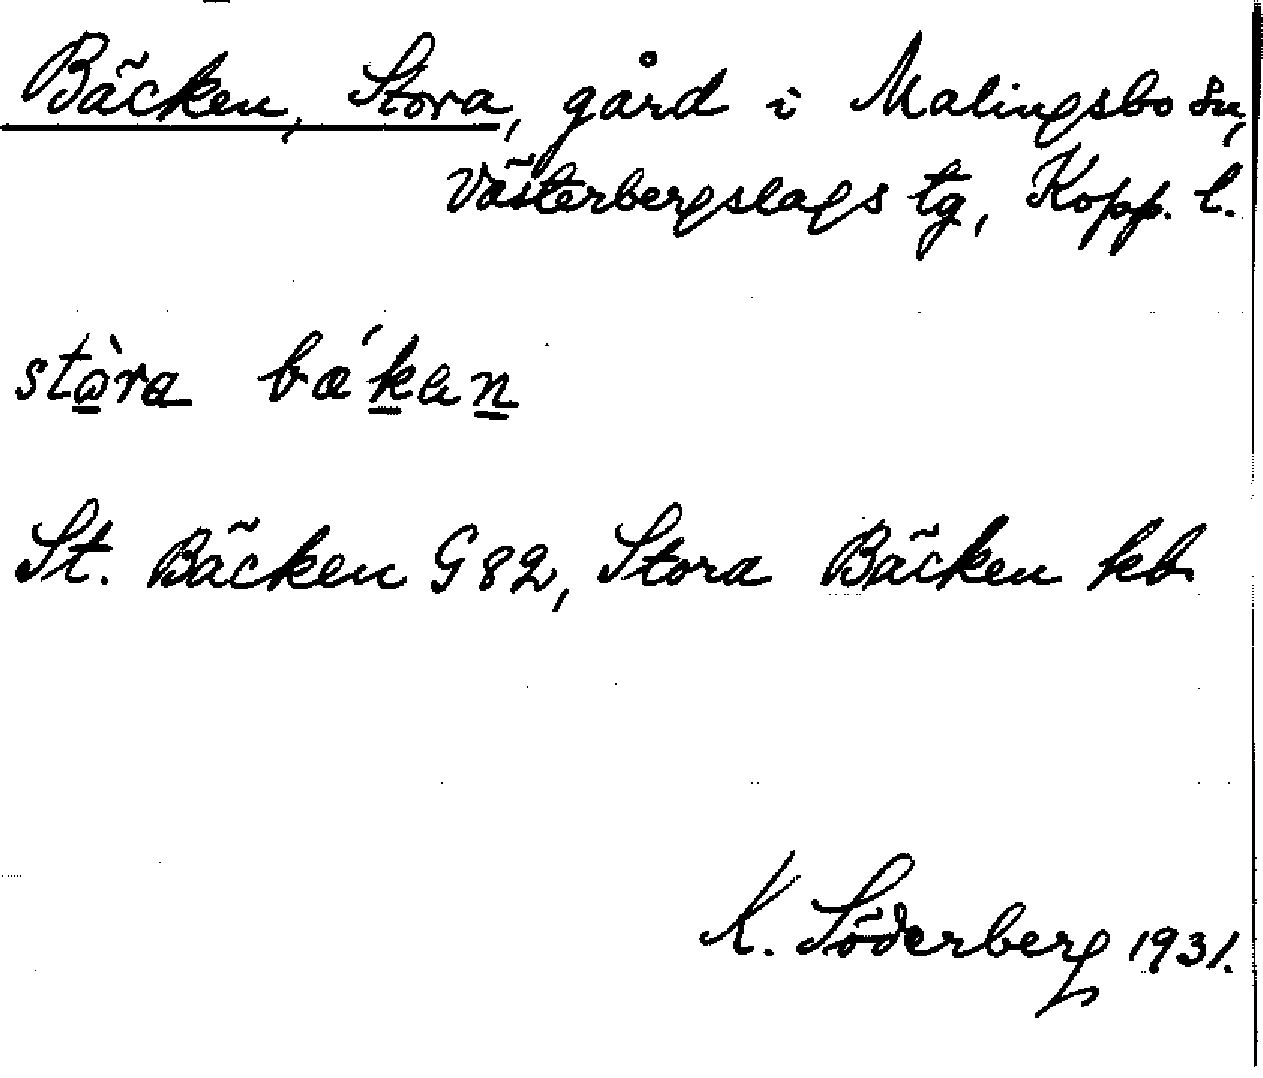 Bäcken, Stora, gård i Malingsbo sn,
Västerbergslags tg, Kopp. l.
stòra bæ´kan
St. Bäcken G 82, Stora Bäcken kb.
K. Söderberg 1931.